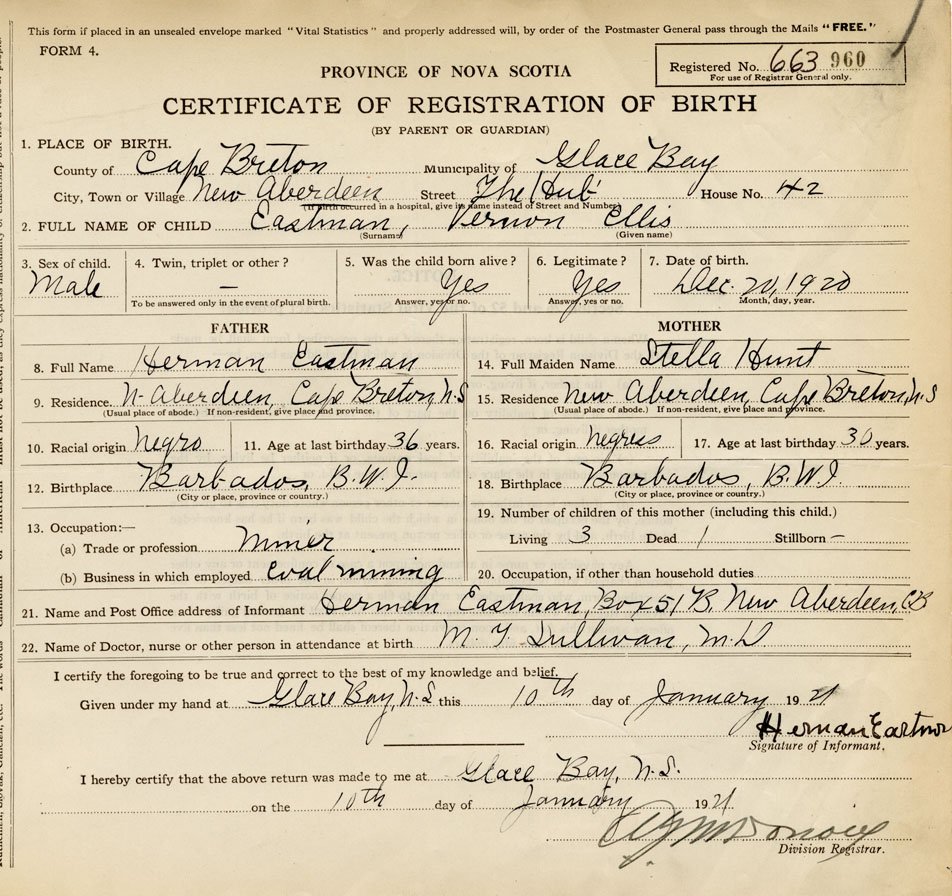 This form if placed in an unsealed envelope marked "Vital Statistics" and properly addressed will, by order of the Postmaster General pass through the Mails "FREE."
FORM 4.
Registered No. 663 960
For use of Registrar General only.
PROVINCE OF NOVA SCOTIA
CERTIFICATE OF REGISTRATION OF BIRTH
(BY PARENT OR GUARDIAN)
1. PLACE OF BIRTH.
County of Cape Breton Municipality of Glace Bay
City, Town or Village New Aberdeen Street The 'Hub' House No. 42
(If birth occurred in a hospital, give its name instead of Street and Number)
2. FULL NAME OF CHILD Eastman, Vernon Ellis
(Surname) (Given name)
3. Sex of child. 4. Twin, triplet or other? 5. Was the child born alive? 6. Legitimate? 7. Date of birth.
Male — Yes Yes Dec. 20, 1920
To be answered only in the event of plural birth. Answer, yes or no. Answer, yes or no. Month, day, year.
FATHER MOTHER
8. Full Name Herman Eastman 14. Full Maiden Name Stella Hunt
9. Residence. N-Aberdeen, Cape Breton, N.S 15. Residence New Aberdeen, Cape Breton, N.S
(Usual place of abode.) If non-resident, give place and province. (Usual place of abode.) If non-resident, give place and province.
10. Racial origin negro 11. Age at last birthday 36 years. 16. Racial origin negress 17. Age at last birthday 30 years.
12. Birthplace Barbados, B.W.I. 18. Birthplace Barbados, B.W.I.
(City or place, province or country.) (City or place, province or country.)
13. Occupation:— 19. Number of children of this mother (including this child.)
(a) Trade or profession miner Living 3 Dead 1 Stillborn –
(b) Business in which employed coal mining 20. Occupation, if other than household duties
21. Name and Post Office address of Informant Herman Eastman, Box 51B, New Aberdeen, CB
22. Name of Doctor, nurse or other person in attendance at birth M. T. Sullivan, M.D
I certify the foregoing to be true and correct to the best of my knowledge and belief.
Given under my hand at Glace Bay, N.S this 10th day of January 1921
Herman Eastman
Signature of Informant.
I hereby certify that the above return was made to me at Glace Bay, N.S.
on the 10th day of January 1921
Division Registrar.